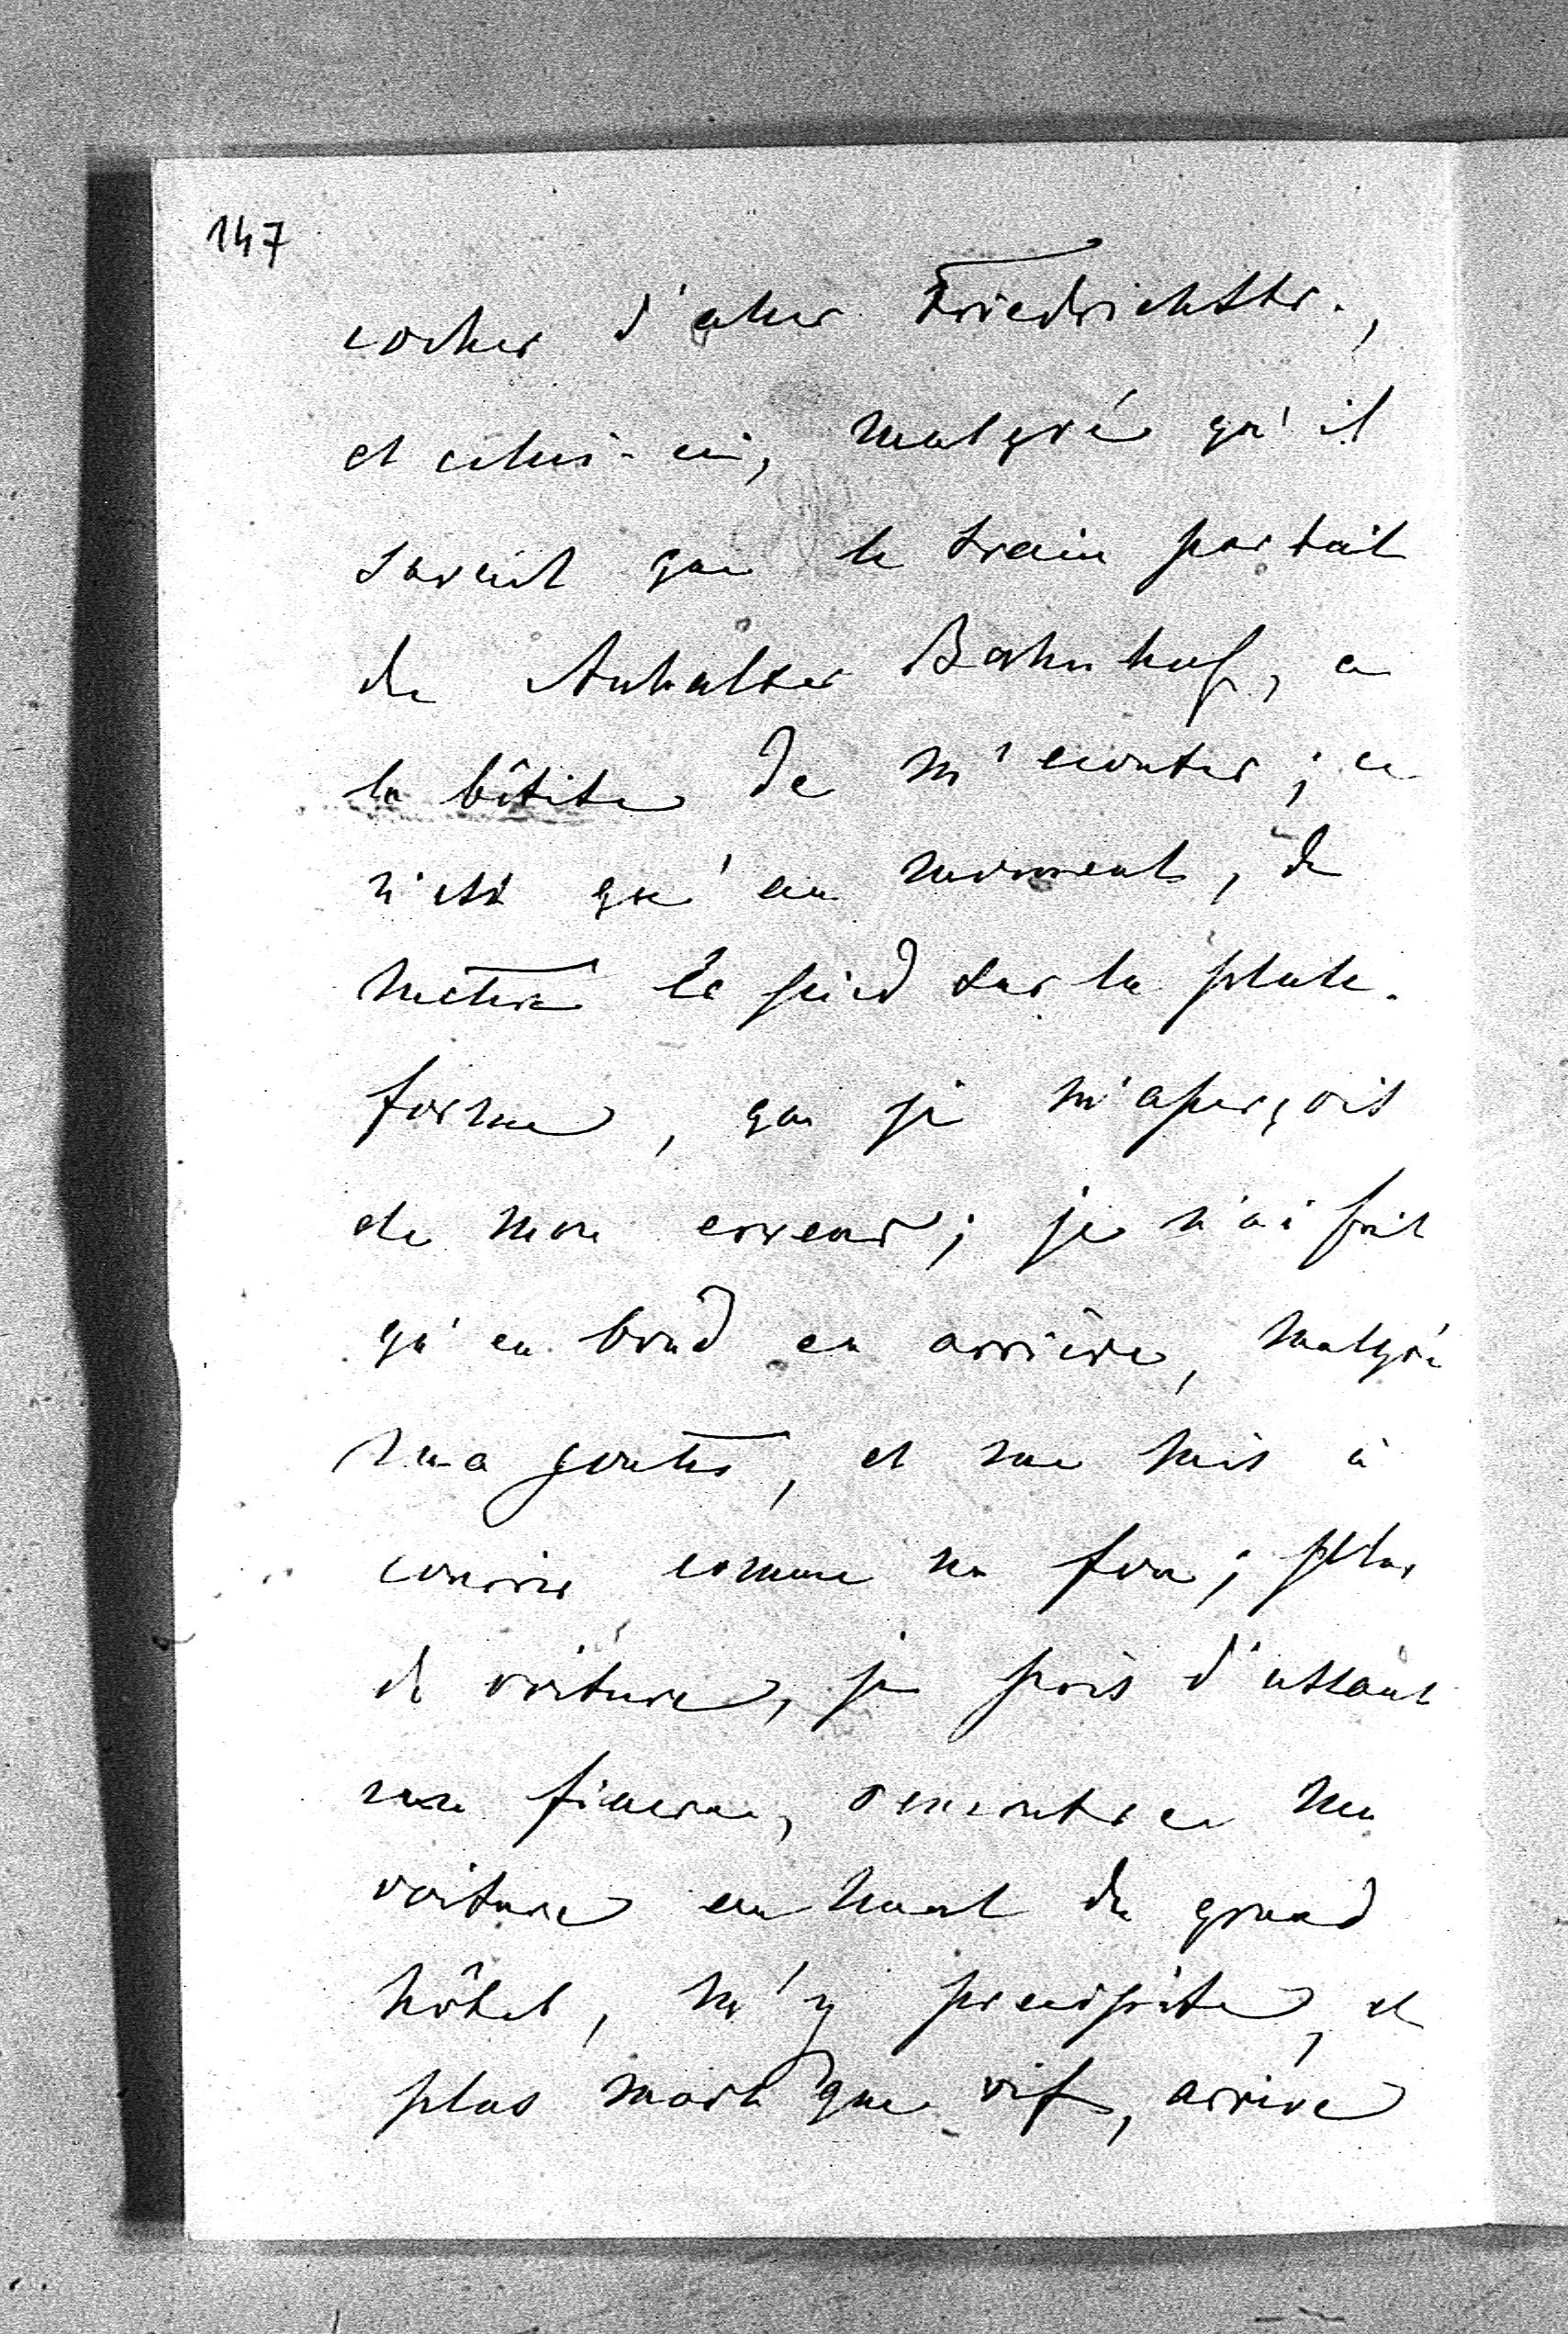 147
cocher d'aller Friedrichstr.,
et celui-ci, malgré qu'il
savait que le train partait
de Anhalter Bahnhof, a
la bêtise de m'écouter ; ce
n'est qu'au moment, de
mettre le pied sur la plate-
forme, que je m'aperçois
de mon erreur ; je n'ai fait
qu'un bond en arrière, malgré
ma goutte, et me mis à
courir comme un fou ; plus
de voiture, je pris d'assaut
un fiacre, rencontre ma
voiture en haut du grand
hôtel, m'y précipite, et
plus mort que vif, arrive